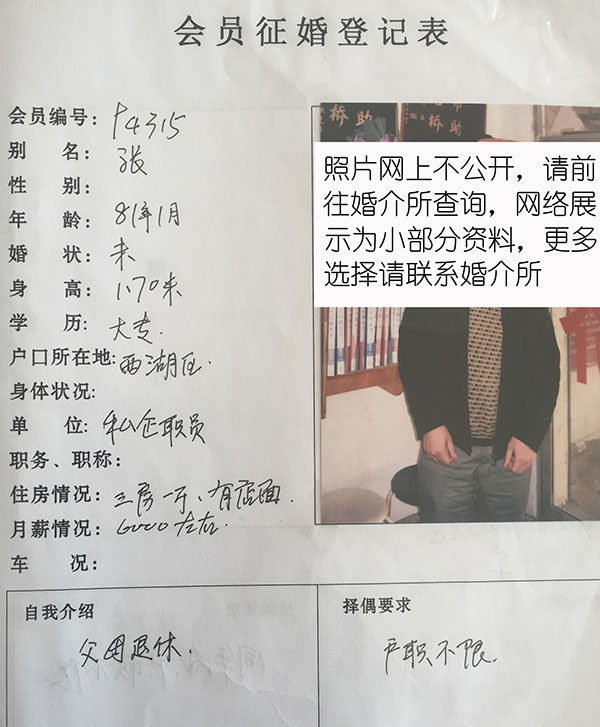 会员征婚登记表
会员编号: P4315
别 名: 张
性 别:
年 龄: 81年1月
婚 状: 未
身 高: 1.70米
学 历: 大专.
户口所在地: 西湖区.
身体状况:
单 位: 私企职员
职务、职称:
住房情况: 三房一厅、有店面.
月薪情况: 6000左右.
车 况:
桥助
照片网上不公开，请前
往婚介所查询，网络展
示为小部分资料，更多
选择请联系婚介所
自我介绍
父母退休.
择偶要求
职不限.